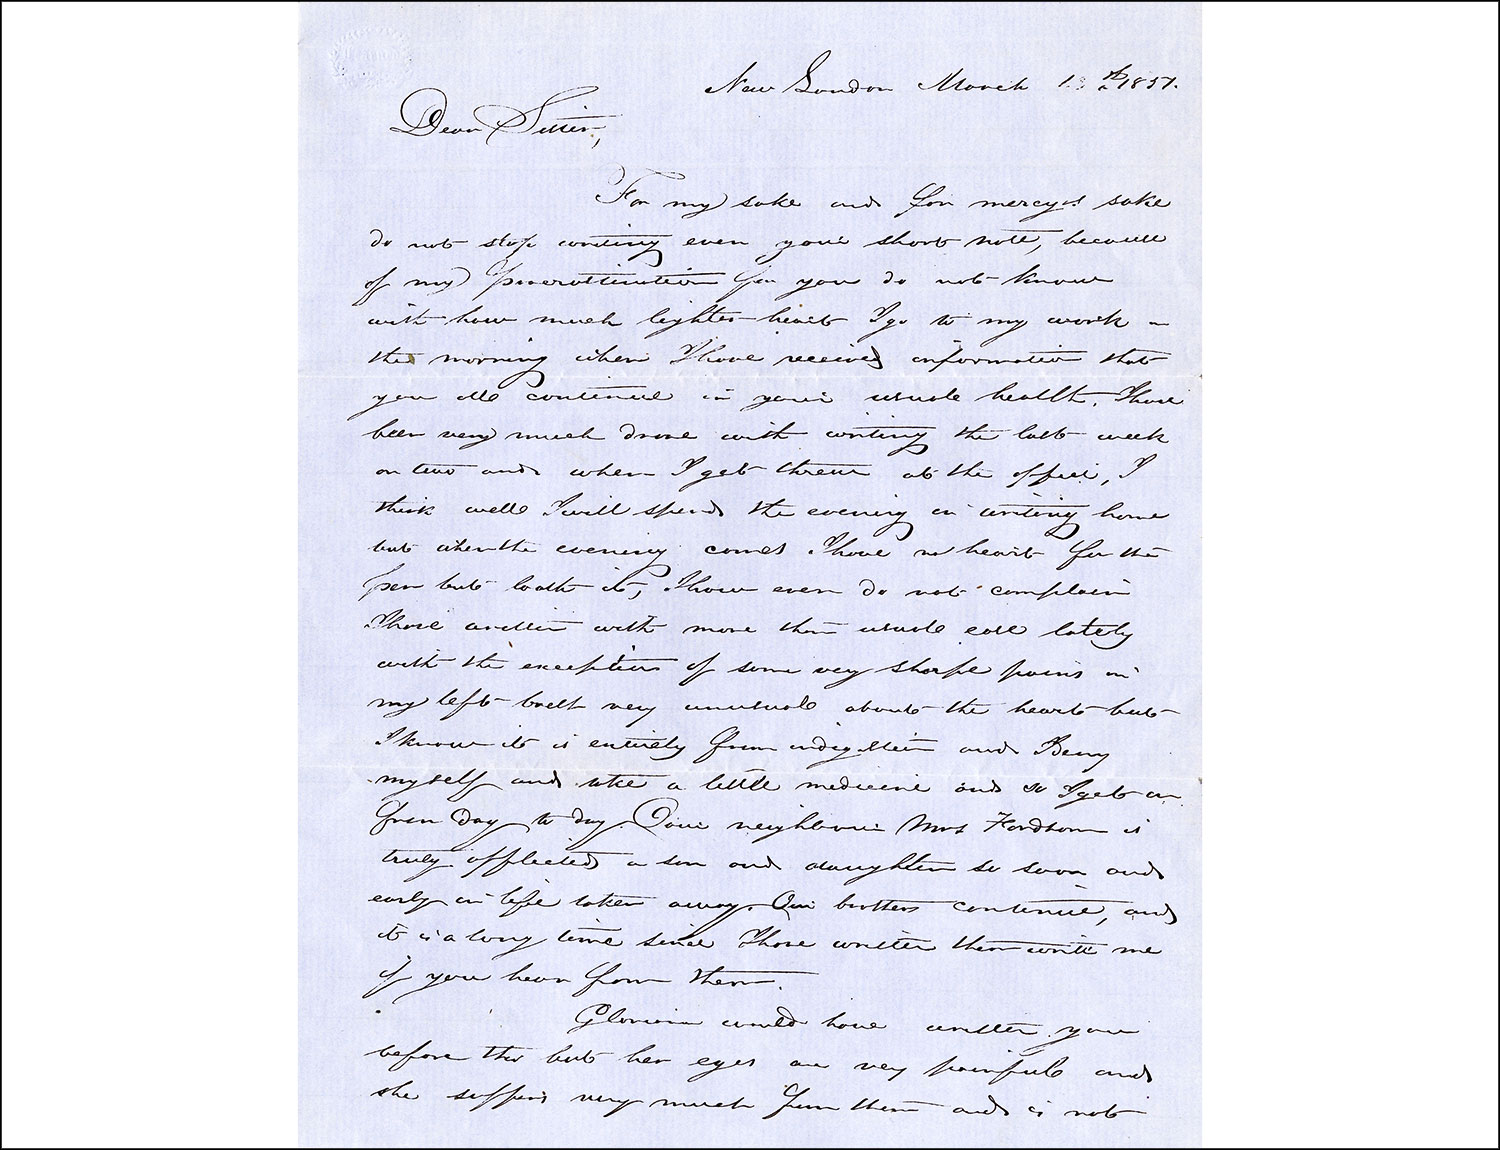 New London March 13th 1851.
Dear Sister,
For my sake and for mercys sake
do not stop writing even your short note, because
of my procrastination for you do not know
with how much lighter heart I go to my work in
the morning when I have received information that
you all continue in your usuale health. I have
been very much drove with writing the last week
or two and when I get threw at the office, I
think well I will spend the evening in writing home
but when the evening comes I have no heart for the
pen but loath it, I how ever do not complain
I have written with more than usuale ease lately
with the exception of some very sharpe pains in
my left breast very unusuale about the heart but
I know it is entirely from indigestion and
myself and take a little medicine and so I get on
from day to day. Our neighbour Mrs Fordham is
truly afflicted a son and daughter so soon and
early in life taken away. Our brothers continue, and
it is a long time since I have written them write me
if you hear from them.
Gloriana would have written you
before this but her eyes are very painfule and
she suffers very much from them and is not